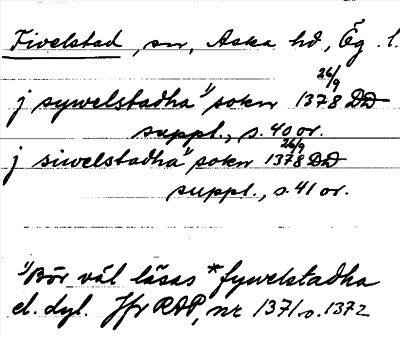 Fivelstad, sn, Aska hd, Ög. l.
j sywelstadha 1) sokn 1378 26/9 DD
suppl., s. 40 or.
j siwelstadha 1) sokn 1378 26/9 DD
suppl., s. 41 or.
1) Bör väl läsas *fywelstadha
el. dyl. Jfr RAP, nr 1371 o. 1372